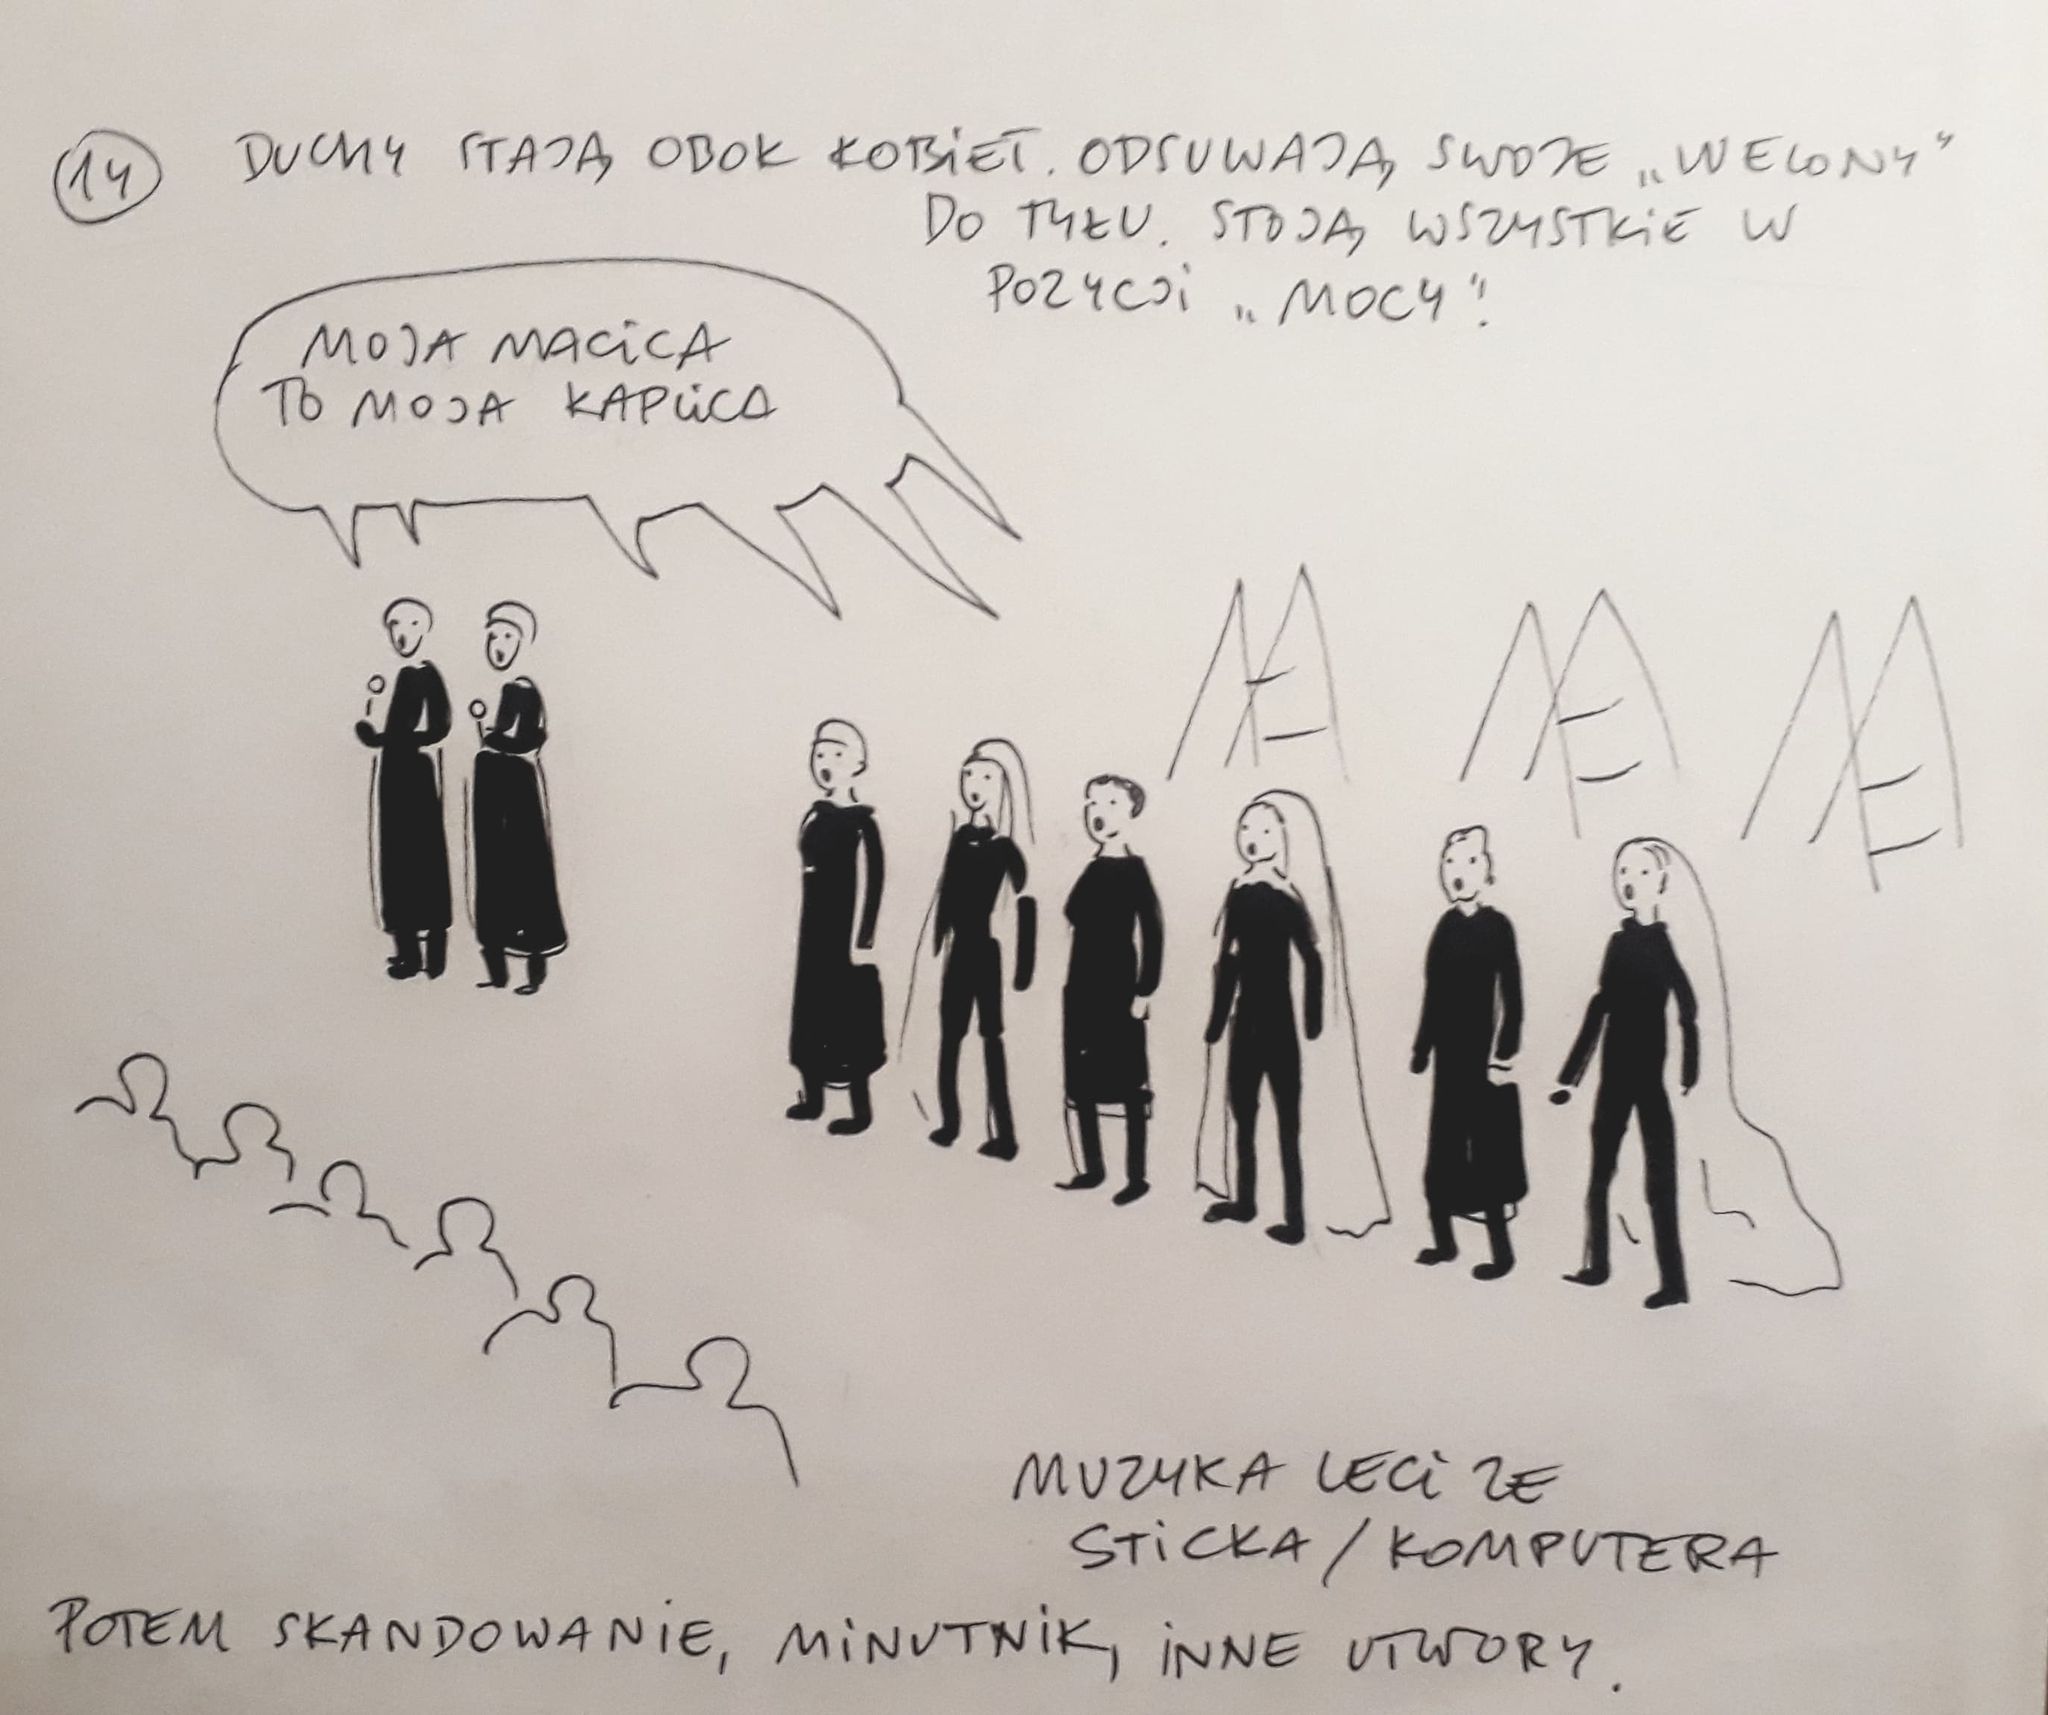 14 DUCHY STAJĄ OBOK KOBIET. ODSUWAJĄ SWOJE „WELONY”
DO TYŁU. STOJĄ WSZYSTKIE W
POZYCJI „MOCY”!
MOJA MACICA
TO MOJA KAPLICA
MUZYKA LECI ZE
STICKA / KOMPUTERA
POTEM SKANDOWANIE, MINUTNIK, INNE UTWORY.